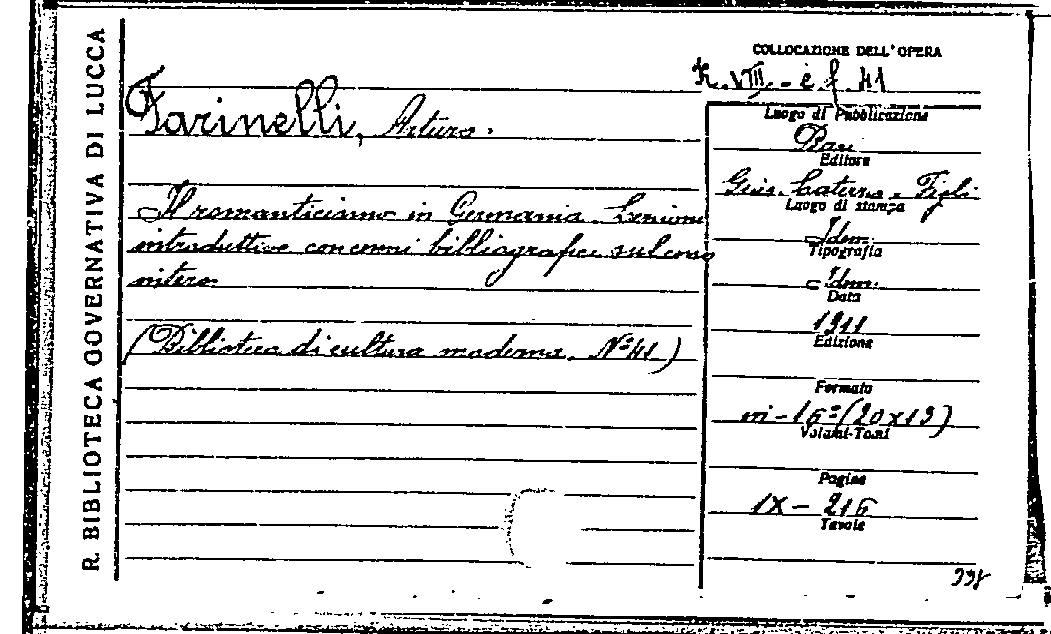 R. BIBLIOTECA GOVERNATIVA DI LUCCA
COLLOCAZIONE DELL'OPERA
K. VIII - è f. 41
Farinelli, Arturo.
Il romanticismo in Germania. Lezioni
introduttive con cenni bibliografici sul
(Biblioteca di cultura moderna. Nº 41)
Luogo di Pubblicazione
Bari
Editore
Gius. Laterza - Figli
Luogo di stampa
Idem.
Tipografia
Idem.
Data
1911
Edizione
Formato
in-16º (20x13)
Volumi-Tomi
Pagine
IX - 216
Tavole